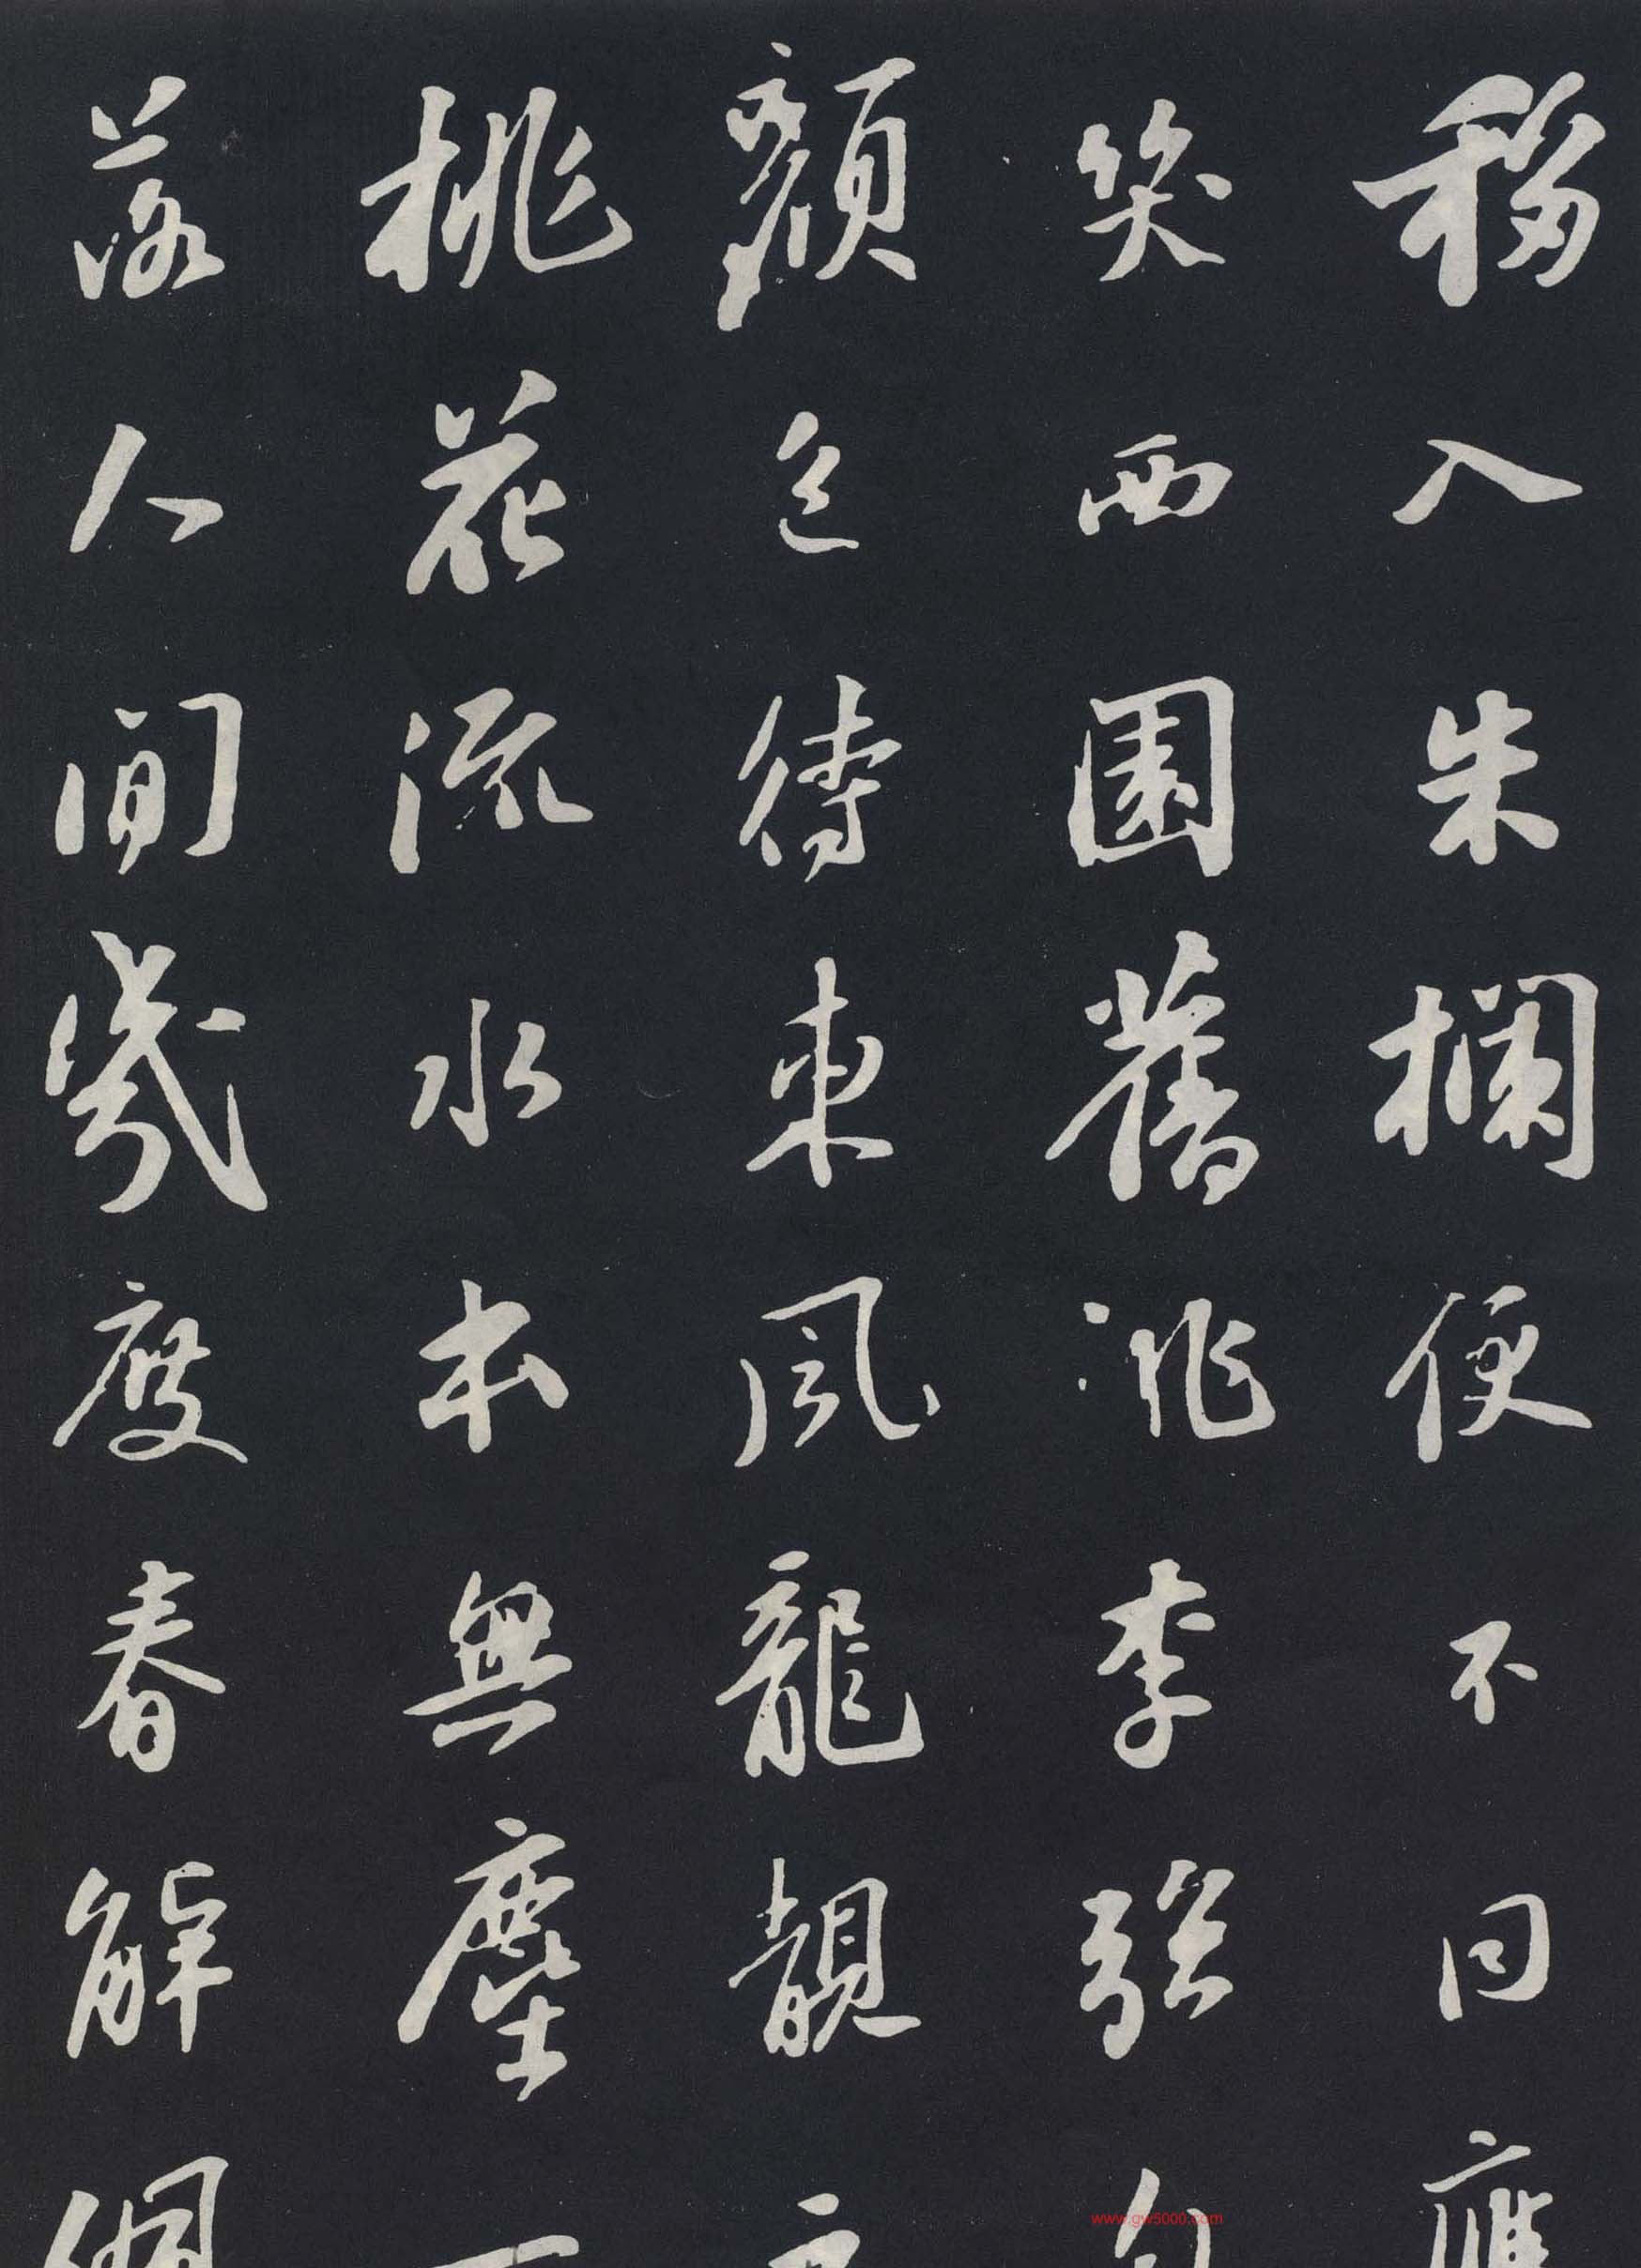 移入朱欄便不同應
笑西園舊桃李強勻
顏色待東風龍靚之
桃花流水本無塵一
落人間幾度春解佩
www.gw5000.com